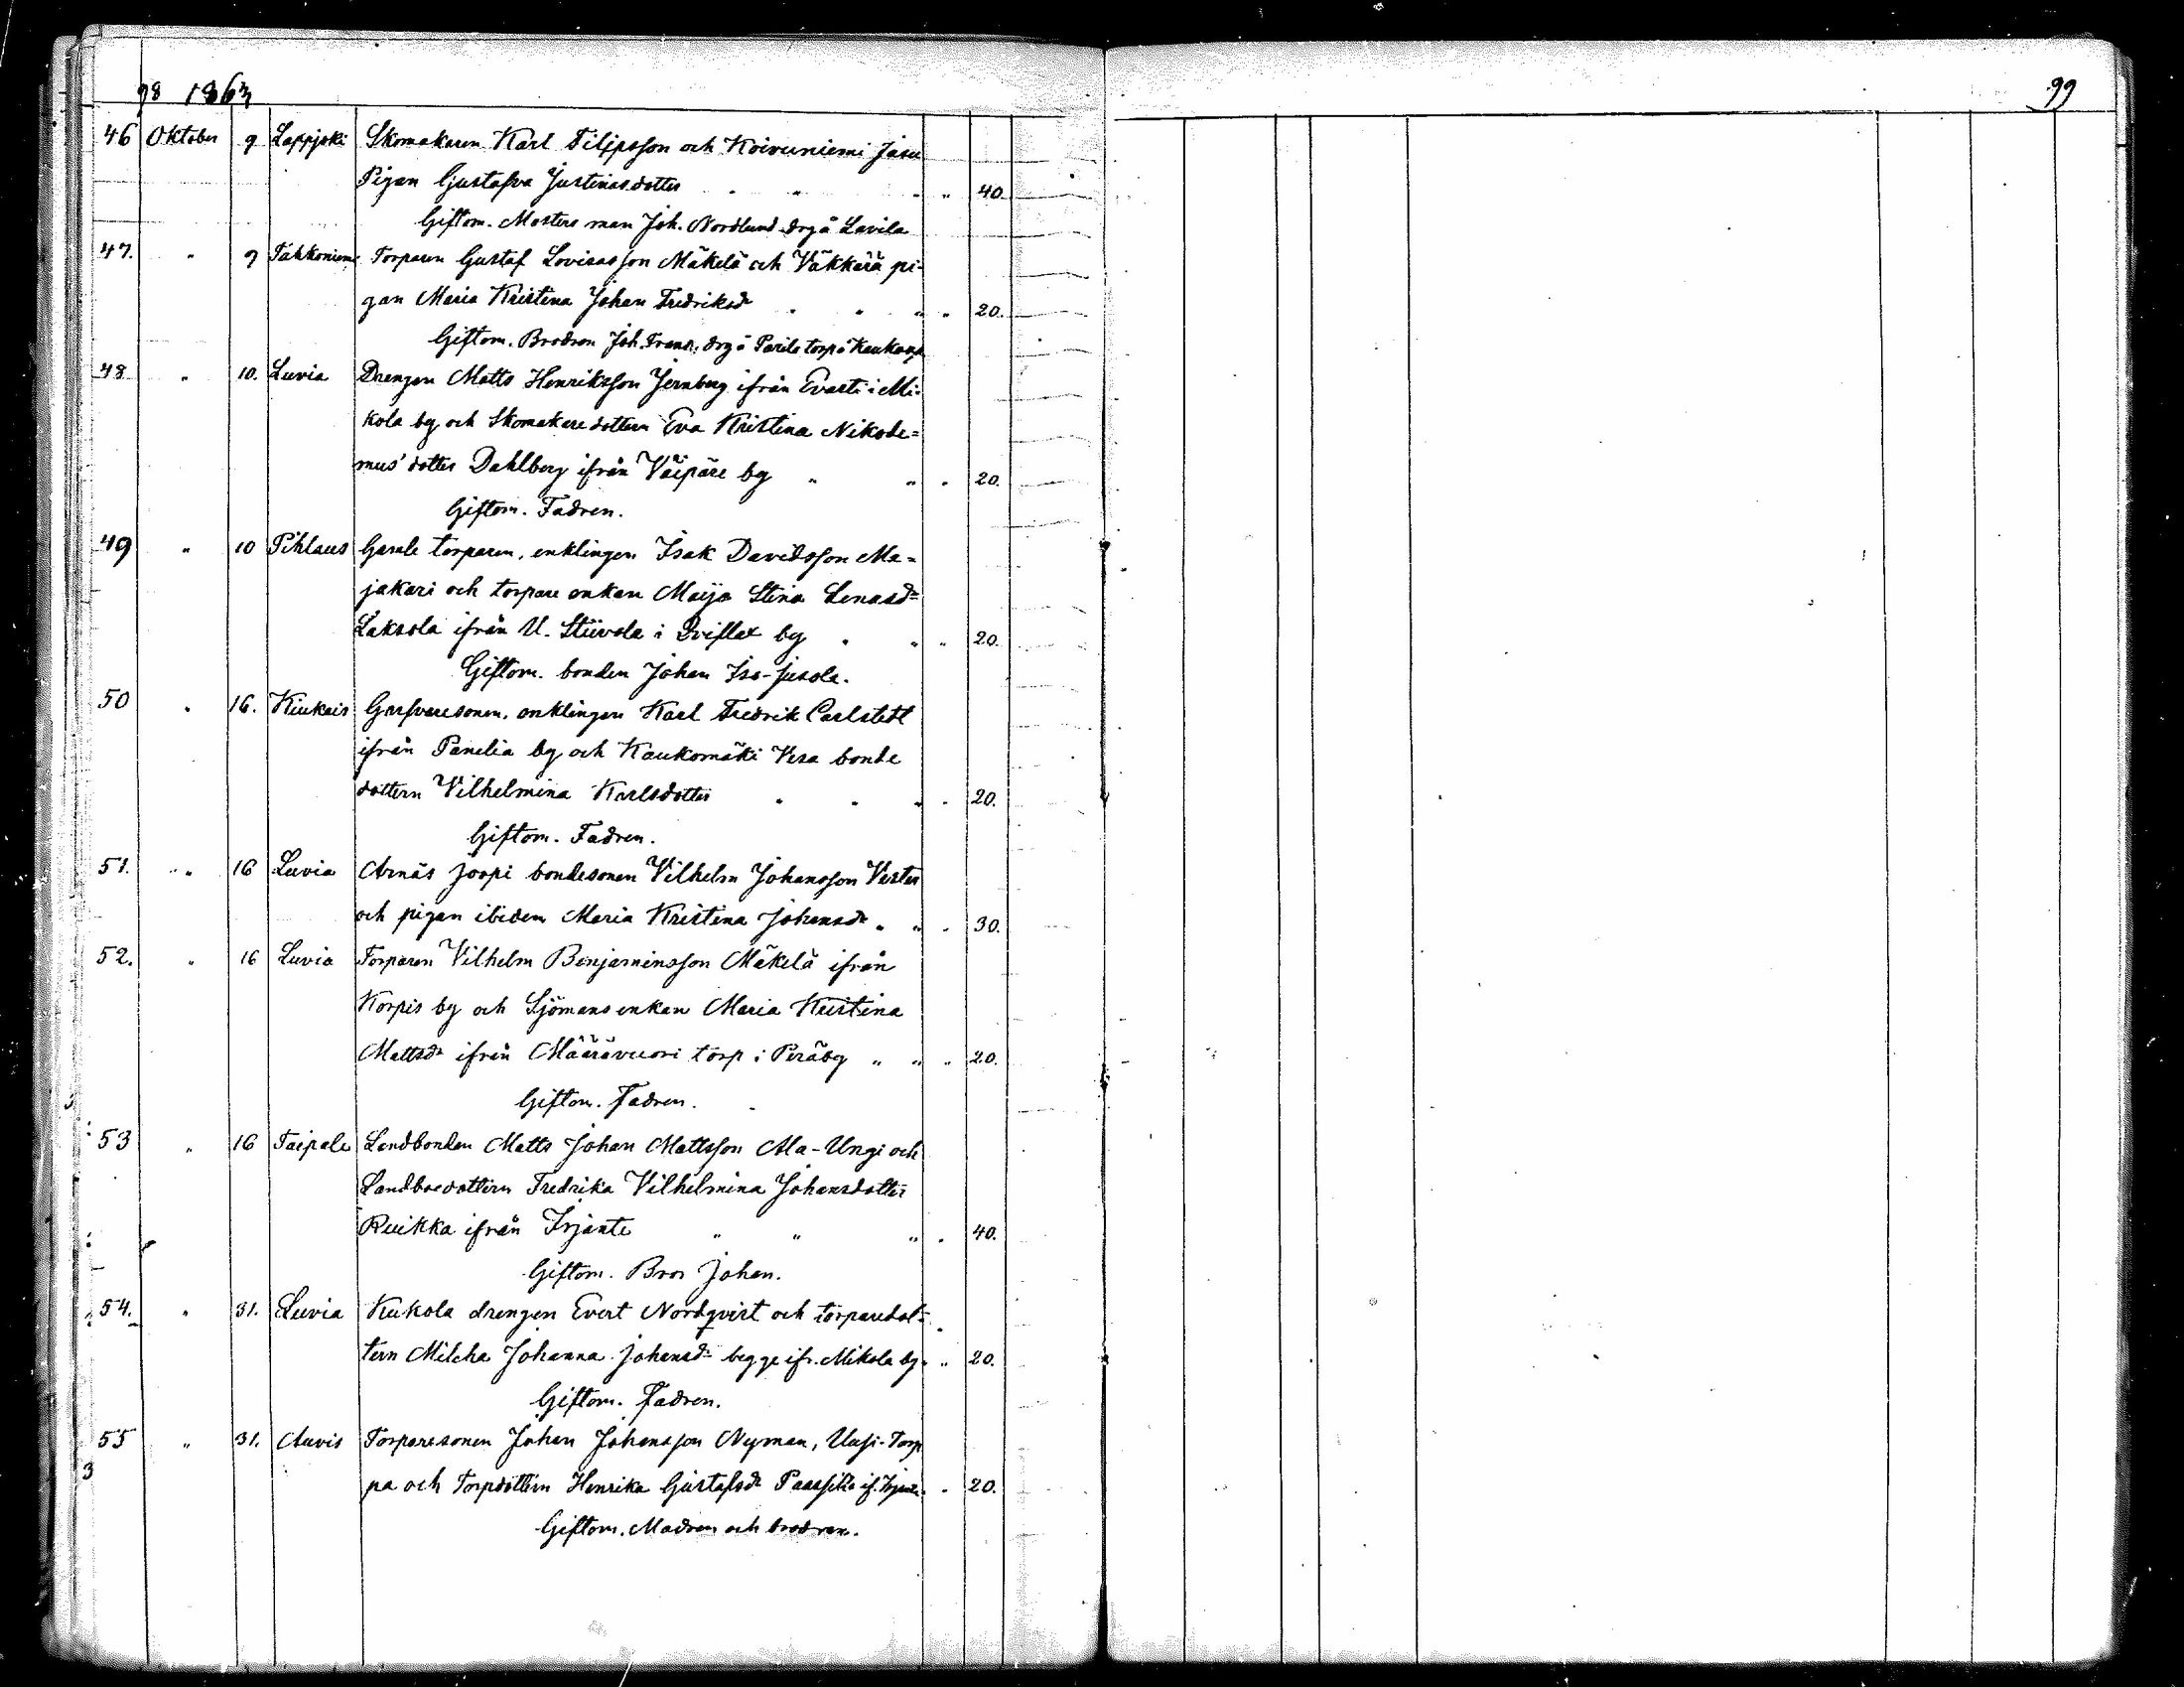 98 1863
99
46 Oktober 9 Lappjoki Skomakaren Karl Filipsson och Koivuniemi Jasu
Pigan Gustafva Justinasdotter " " " " 40.
Giftom. Mosters man Joh. Nordlund drg å Lavila
47. " 9 Tahkoniemi Torparen Gustaf Lovisasson Mäkelä och Väkkärä pi-
gan Maria Kristina Johan Fredriksdr " " " " 20.
Giftom. Brodren Joh. Frans, drg å Parila torp å Kaukomäki
48 " 10. Luvia Drengen Matts Henriksson Jernberg ifrån Evarti i Mi-
kola by och Skomakaredottern Eva Kristina Nikode=
mus'dotter Dahlberg ifrån Väipäre by " " " 20.
Giftom. Fadren.
49 " 10 Pihlaus Gamle torparen, enklingen Isak Davidsson Ma=
jakari och torpare enkan Maija Stina Lenasdr
Laksola ifrån U. Stiivola i Qviflax by " " " 20.
Giftom. bonden Johan Iso-Jusola.
50 " 16. Kiukais Garfvaresonen, enklingen Karl Fredrik Carlstedt
ifrån Panelia by och Kaukomäki Vesa bonde
dottern Vilhelmina Karlsdotter " " " " 20.
Giftom. Fadren.
51. " 16 Luvia Arnäs Joopi bondesonen Vilhelm Johansson Vester
och pigan ibidem Maria Kristina Johansdr " " " 30.
52. " 16 Luvia Torparen Vilhelm Benjaminsson Mäkelä ifrån
Korpis by och Sjömansenkan Maria Kristina
Mattsdr ifrån Määrävuori torp i Peräby " " " 20.
Giftom. Fadren.
53 " 16 Taipale Landbonden Matts Johan Mattsson Ala-Ungi och
Landboedottern Fredrika Vilhelmina Johansdotter
Ruikka ifrån Irjante " " " " 40.
Giftom. Bror Johan.
54. " 31. Luvia Kukola drengen Evert Nordqvist och torparedot=
tern Milcha Johanna Johansdr begge ifr. Mikola by " " 20.
Giftom. Fadren.
55 " 31. Auvis Torparesonen Johan Johansson Nyman, Uusi-Torp
pa och Torpdottern Henrika Gustafsdr if. Irjante " 20.
Giftom. Modren och brodren.
3